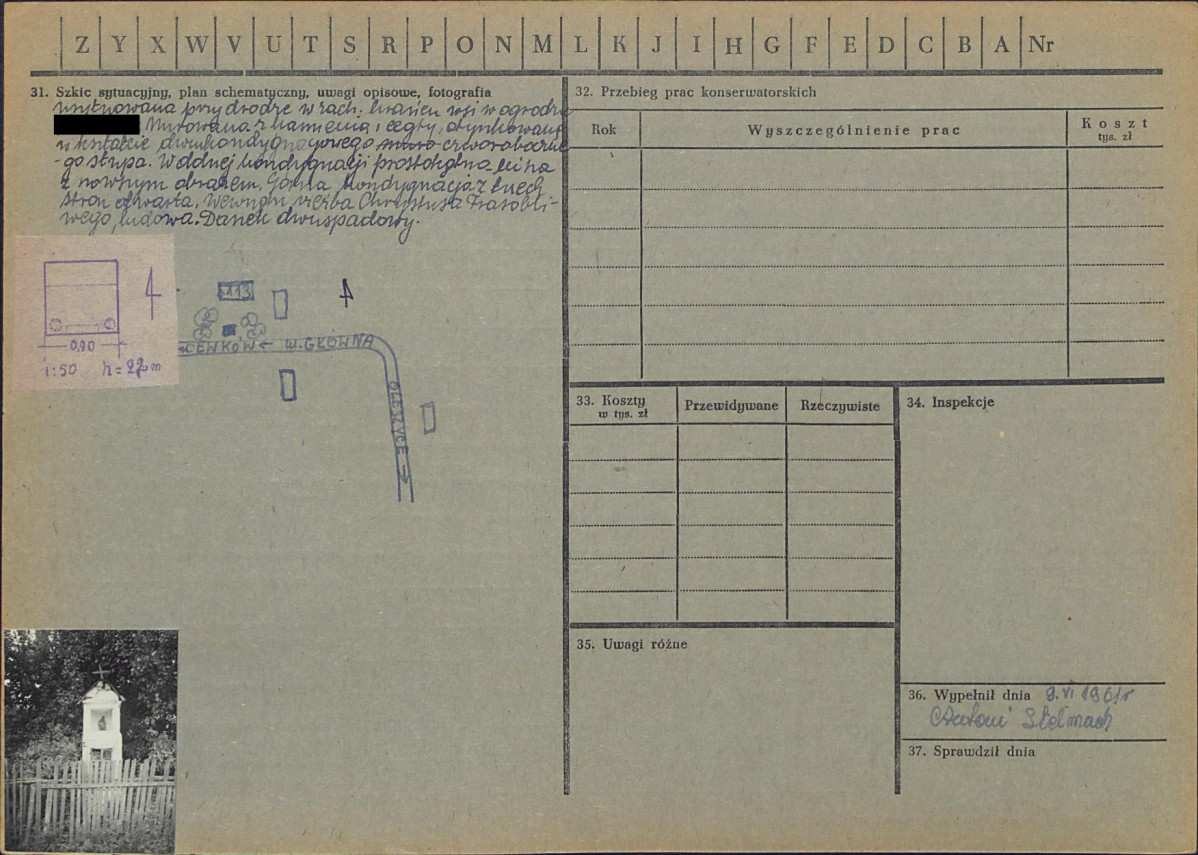 Z Y X W V U T S R P O N M L K J I H G F E D C B A Nr
31. Szkic sytuacyjny, plan schematyczny, uwagi opisowe, fotografia
usytuowana przy drodze w zach. krańcu wsi w ogrodzie
Murowana z kamienia i cegły, otynkowana
w kształcie dwukondygnacyjowego czworoboczne-
-go słupa. W dolnej kondygnacji prostokątna
z nowszym obrazem. Górna kondygnacja z trzech
stron otwarta, wewnątrz rzeźba Chrystusa Frasobli-
wego, ludowa. Daszek dwuspadowy.
0,90
1:50 h=
113
CEWKÓW ← W. GŁÓWNA
OLESZYCE →
32. Przebieg prac konserwatorskich
Rok Wyszczególnienie prac Koszt
tys. zł
33. Koszty
w tys. zł Przewidywane Rzeczywiste
34. Inspekcje
35. Uwagi różne
36. Wypełnił dnia 9. VI 1961 r
Antoni Stelmach
37. Sprawdził dnia